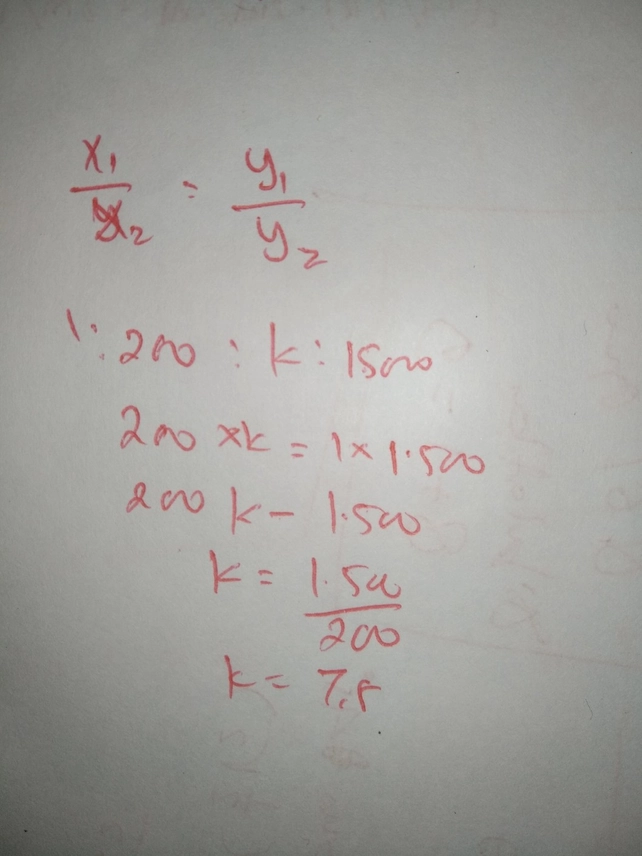 x₁/x₂ = y₁/y₂
1 : 200 : k : 1500
200 × k = 1 × 1.500
200 k - 1.500
k = 1.500/200
k = 7.5